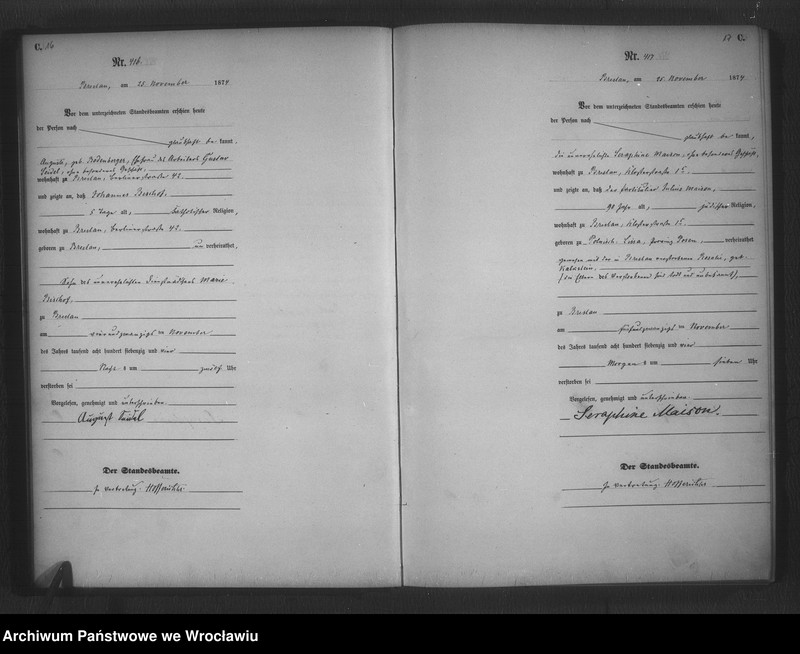 C. 16
Nr. 416
Breslau, am 25 November 1874
Vor dem unterzeichneten Standesbeamten erschien heute
der Persönlichkeit nach
be kannt,
Auguste, geb. Bodenberger, Ehefrau des Arbeiters Gustav
wohnhaft zu Breslau, Berlinerstraße 42.
und zeigte an, daß Johannes Bischof,
5 Tage alt, katholischer Religion,
wohnhaft zu Breslau, Berlinerstraße 42.
geboren zu Breslau, un verheirathet,
Sohn der unverehelichten Dienstmädchen Marie
Bischof,
zu Breslau
am vierundzwanzigsten November
des Jahres tausend acht hundert siebenzig und vier
Nachts um zwölf Uhr
verstorben sei
Vorgelesen, genehmigt und unterschrieben
August
Der Standesbeamte.
In Vertretung.
17 C.
Nr. 417
Breslau, am 25 November 1874
Vor dem unterzeichneten Standesbeamten erschien heute
der Person nach
kannt,
die unverehelichte Seraphine Maison, ohne besonderes Geschäft,
wohnhaft zu Breslau, Klosterstraße
und zeigte an, daß der Partikulier Julius Maison,
90 Jahr alt, jüdischer Religion,
wohnhaft zu Breslau, Klosterstraße
geboren zu Polnisch-Lissa, Provinz Posen, verheirathet
gewesen mit der in Breslau verstorbenen geb.
(die Eltern des Verstorbenen sind todt und unbekannt),
zu Breslau
am fünfundzwanzigsten November
des Jahres tausend acht hundert siebenzig und vier
Morgens um sieben Uhr
verstorben sei
Vorgelesen, genehmigt und unterschrieben
Seraphine Maison.
Der Standesbeamte.
In Vertretung.
Archiwum Państwowe we Wrocławiu